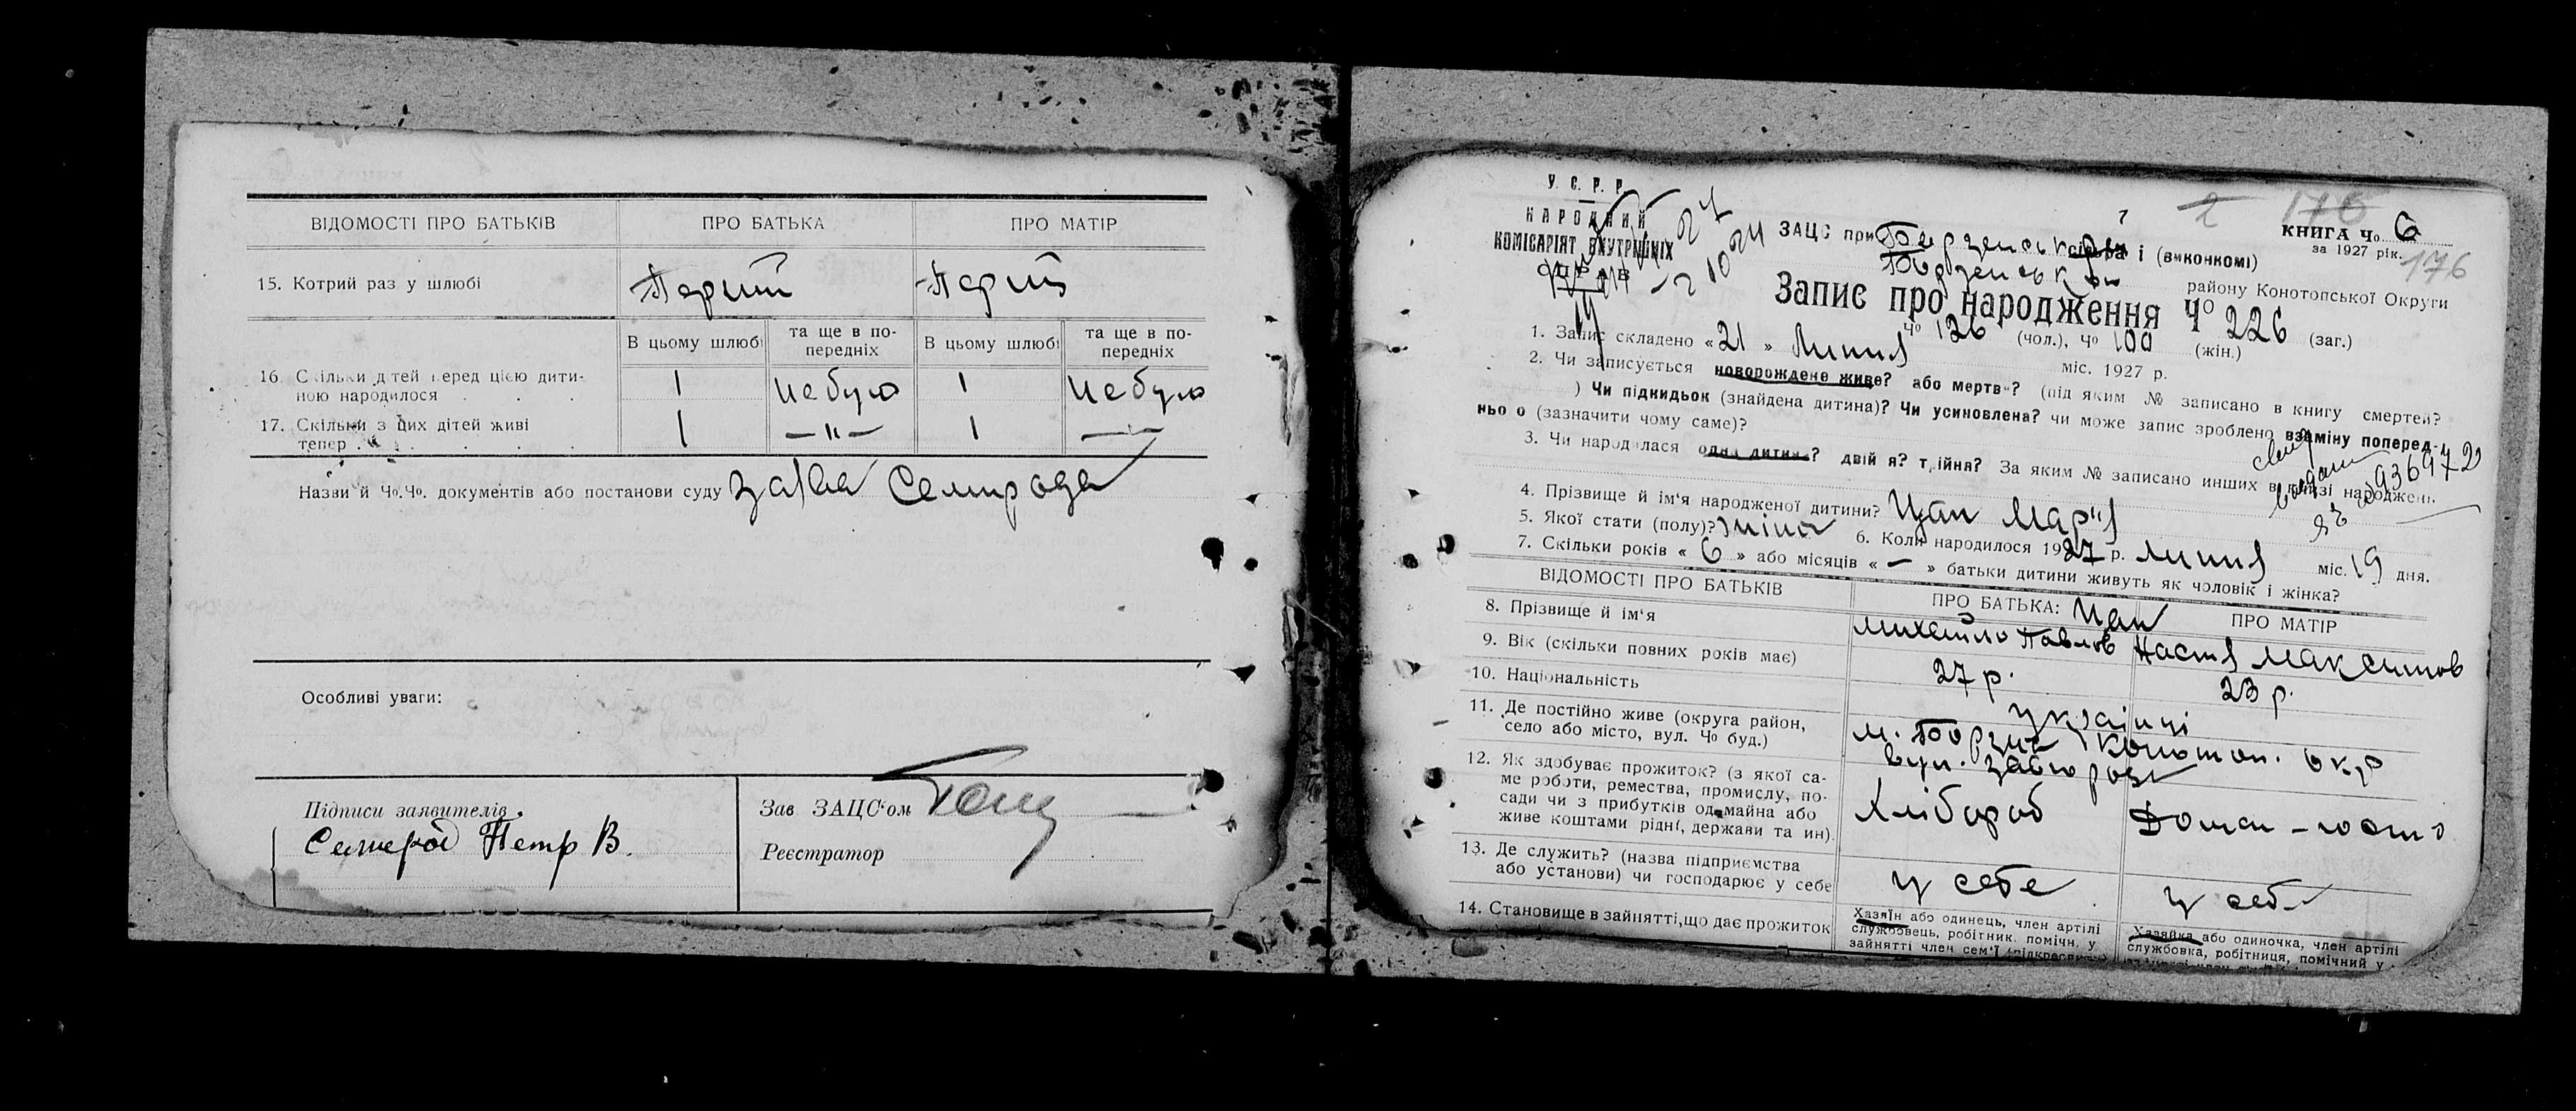 ВІДОМОСТІ ПРО БАТЬКІВ ПРО БАТЬКА ПРО МАТІР
15. Котрий раз у шлюбі Перший Перший
В цьому шлюбі та ще в по-передніх В цьому шлюбі та ще в по-передніх
16. Скільки дітей перед цією дити-
ною народилося . . . 1 Небуло 1 Небуло
17. Скільки з цих дітей живі
тепер . . . . 1 —"— 1 —"—
Назви й Чо.Чо. документів або постанови суду заява Семирода
Особливі уваги:
Підписи заявителів.
Семерод Петр В.
Зав ЗАЦС'ом
Реєстратор
У. С. Р. Р.
НАРОДНИЙ
КОМІСАРІЯТ ВНУТРІШНІХ
СПРАВ
2 176
КНИГА Чо 6
за 1927 рік.
176
ЗАЦС при Борзенськ сільра і (виконкомі)
Борзенськ району Конотопської Округи
Запис про народження Чо 226 (заг.)
Чо 126 (чол.), Чо 100 (жін.)
1. Запис складено « 21 » Липня міс. 1927 р.
2. Чи записується новорождене живе? або мертве? (під яким № записано в книгу смертей?
) Чи підкидьок (знайдена дитина)? Чи усиновлена? чи може запис зроблено взаміну поперед-
ньо о (зазначити чому саме)?
3. Чи народилася одна дитина? двій я? трійня? За яким № записано инших в книзі народжень
4. Прізвище й ім'я народженої дитини? Цап Марія
5. Якої стати (полу)? жіноч 6. Коли народилося 1927 р. липня міс. 19 дня.
7. Скільки років « 6 » або місяців « — » батьки дитини живуть як чоловік і жінка?
ВІДОМОСТІ ПРО БАТЬКІВ ПРО БАТЬКА: Цап ПРО МАТІР
8. Прізвище й ім'я Михайло Павлов Настя Максимов
9. Вік (скільки повних років має) 27 р. 23 р.
10. Національність українці
11. Де постійно живе (округа район,
село або місто, вул. Чо буд.) м. Борзна Конотоп. окр
вул.
12. Як здобуває прожиток? (з якої са-
ме роботи, ремества, промислу, по-
сади чи з прибутків од майна або
живе коштами рідні, держави та ин). Хлібороб Домаш-
13. Де служить? (назва підприємства
або установи) чи господарює у себе у себе у себе
14. Становище в зайнятті, що дає прожиток
Хазяїн або одинець, член артілі
службовець, робітник. помічн. у
зайнятті член сем'ї (підкреслити)
Хазяйка або одиночка, член артілі
службовка, робітниця, помічний у